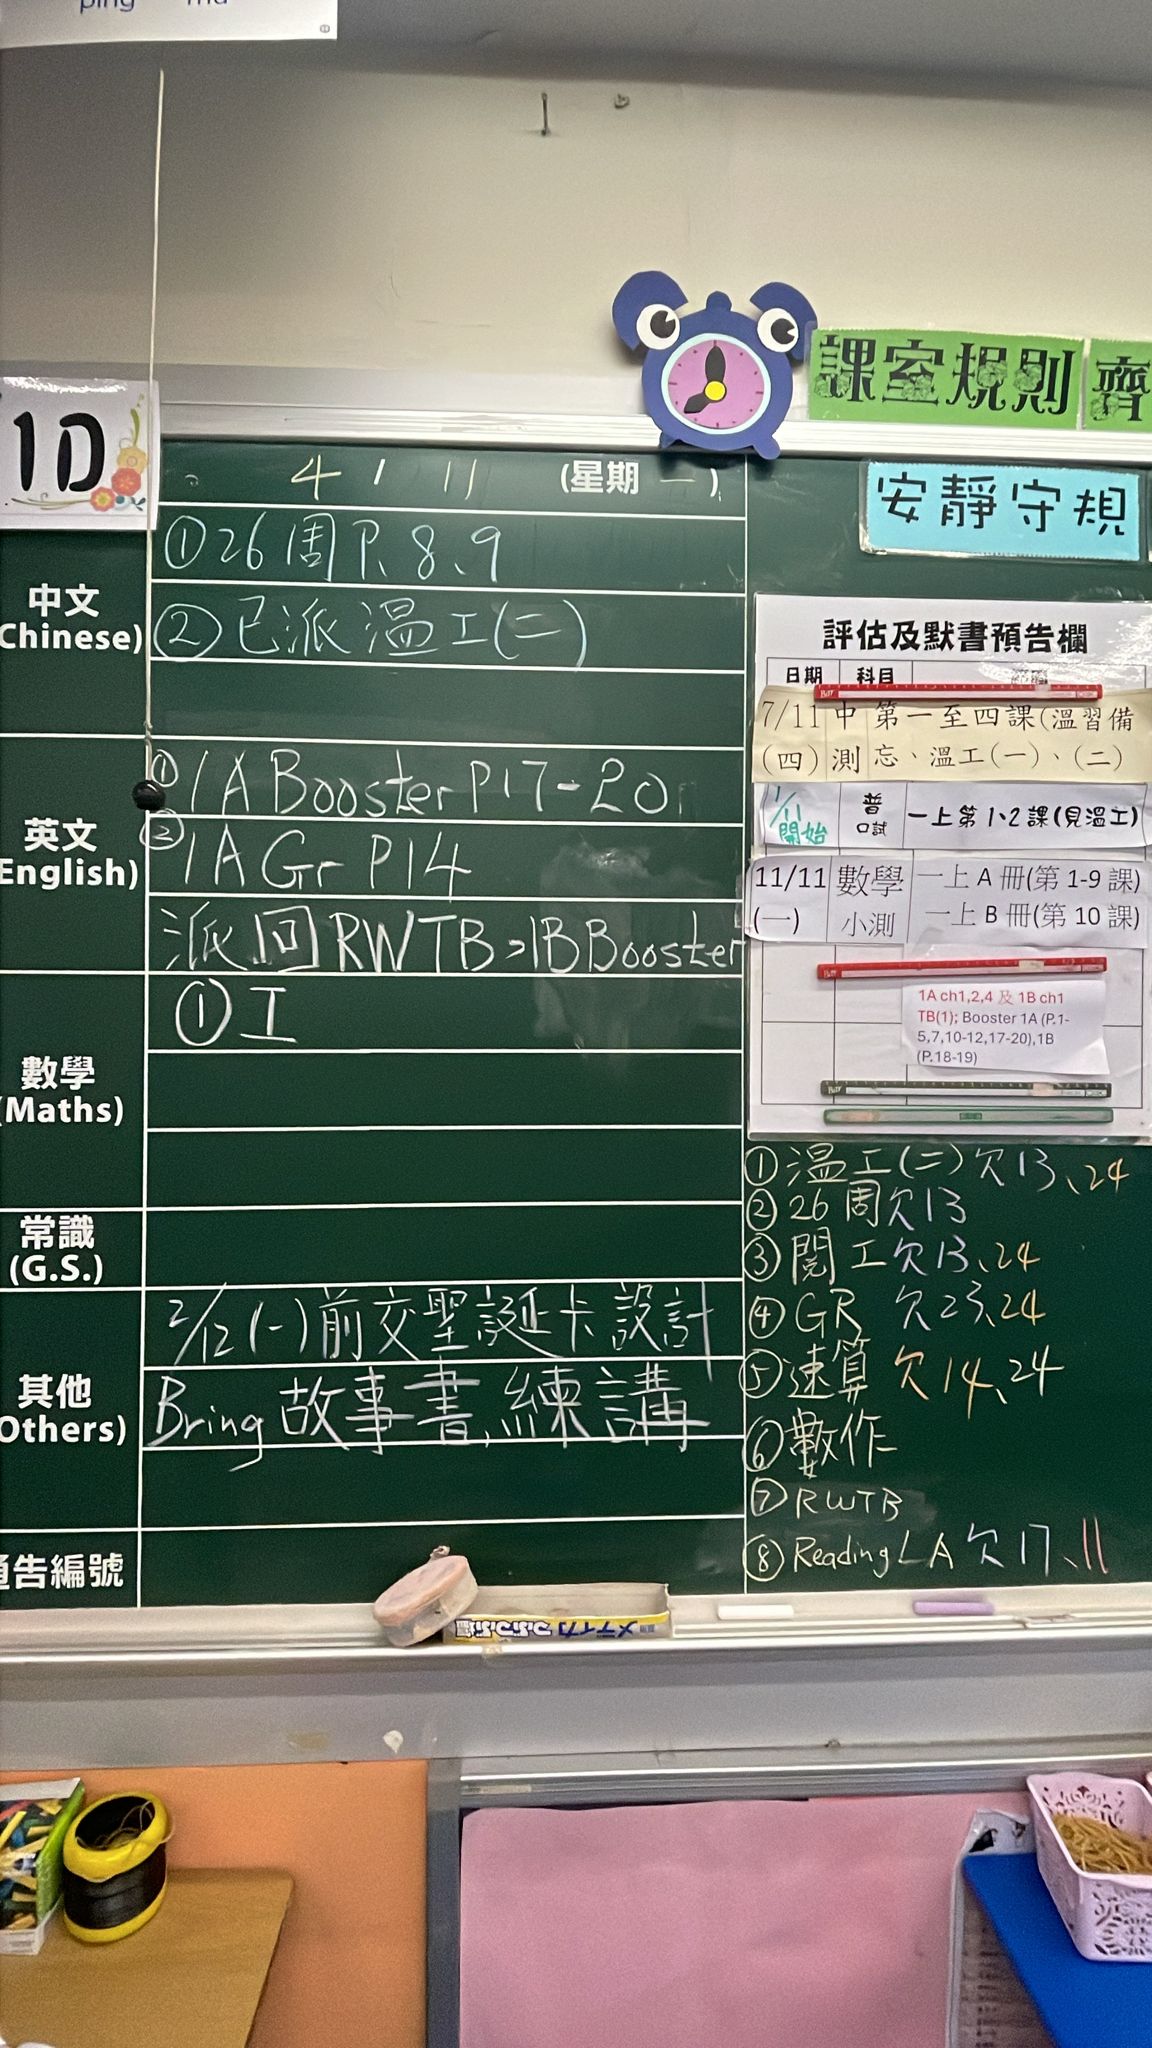 ping ma
課室規則 齊
1D
安靜守規
4 / 11 (星期一)
中文
Chinese)
①26周P.8、9
②已派溫工(二)
英文
English)
①1A Booster P17-20
②1A Gr P14
派回RWTB、1B Booster
數學
(Maths)
①工
常識
(G.S.)
其他
Others)
2/12(一)前交聖誕卡設計
Bring故事書,練講
告編號
評估及默書預告欄
日期 科目
7/11 中 第一至四課(溫習備
(四) 測 忘、溫工(一)、(二)
1/11 普 一上第1、2課(見溫工)
開始 口試
11/11 數學 一上A冊(第1-9課)
(一) 小測 一上B冊(第10課)
1A ch1,2,4 及 1B ch1
TB(1); Booster 1A (P.1-
5,7,10-12,17-20),1B
(P.18-19)
①溫工(二)欠13、24
②26周欠13
③閱工欠13、24
④GR 欠23、24
⑤速算 欠14、24
⑥數作
⑦RWTB
⑧Reading LA 欠17、11
メディカ つぶつぶ